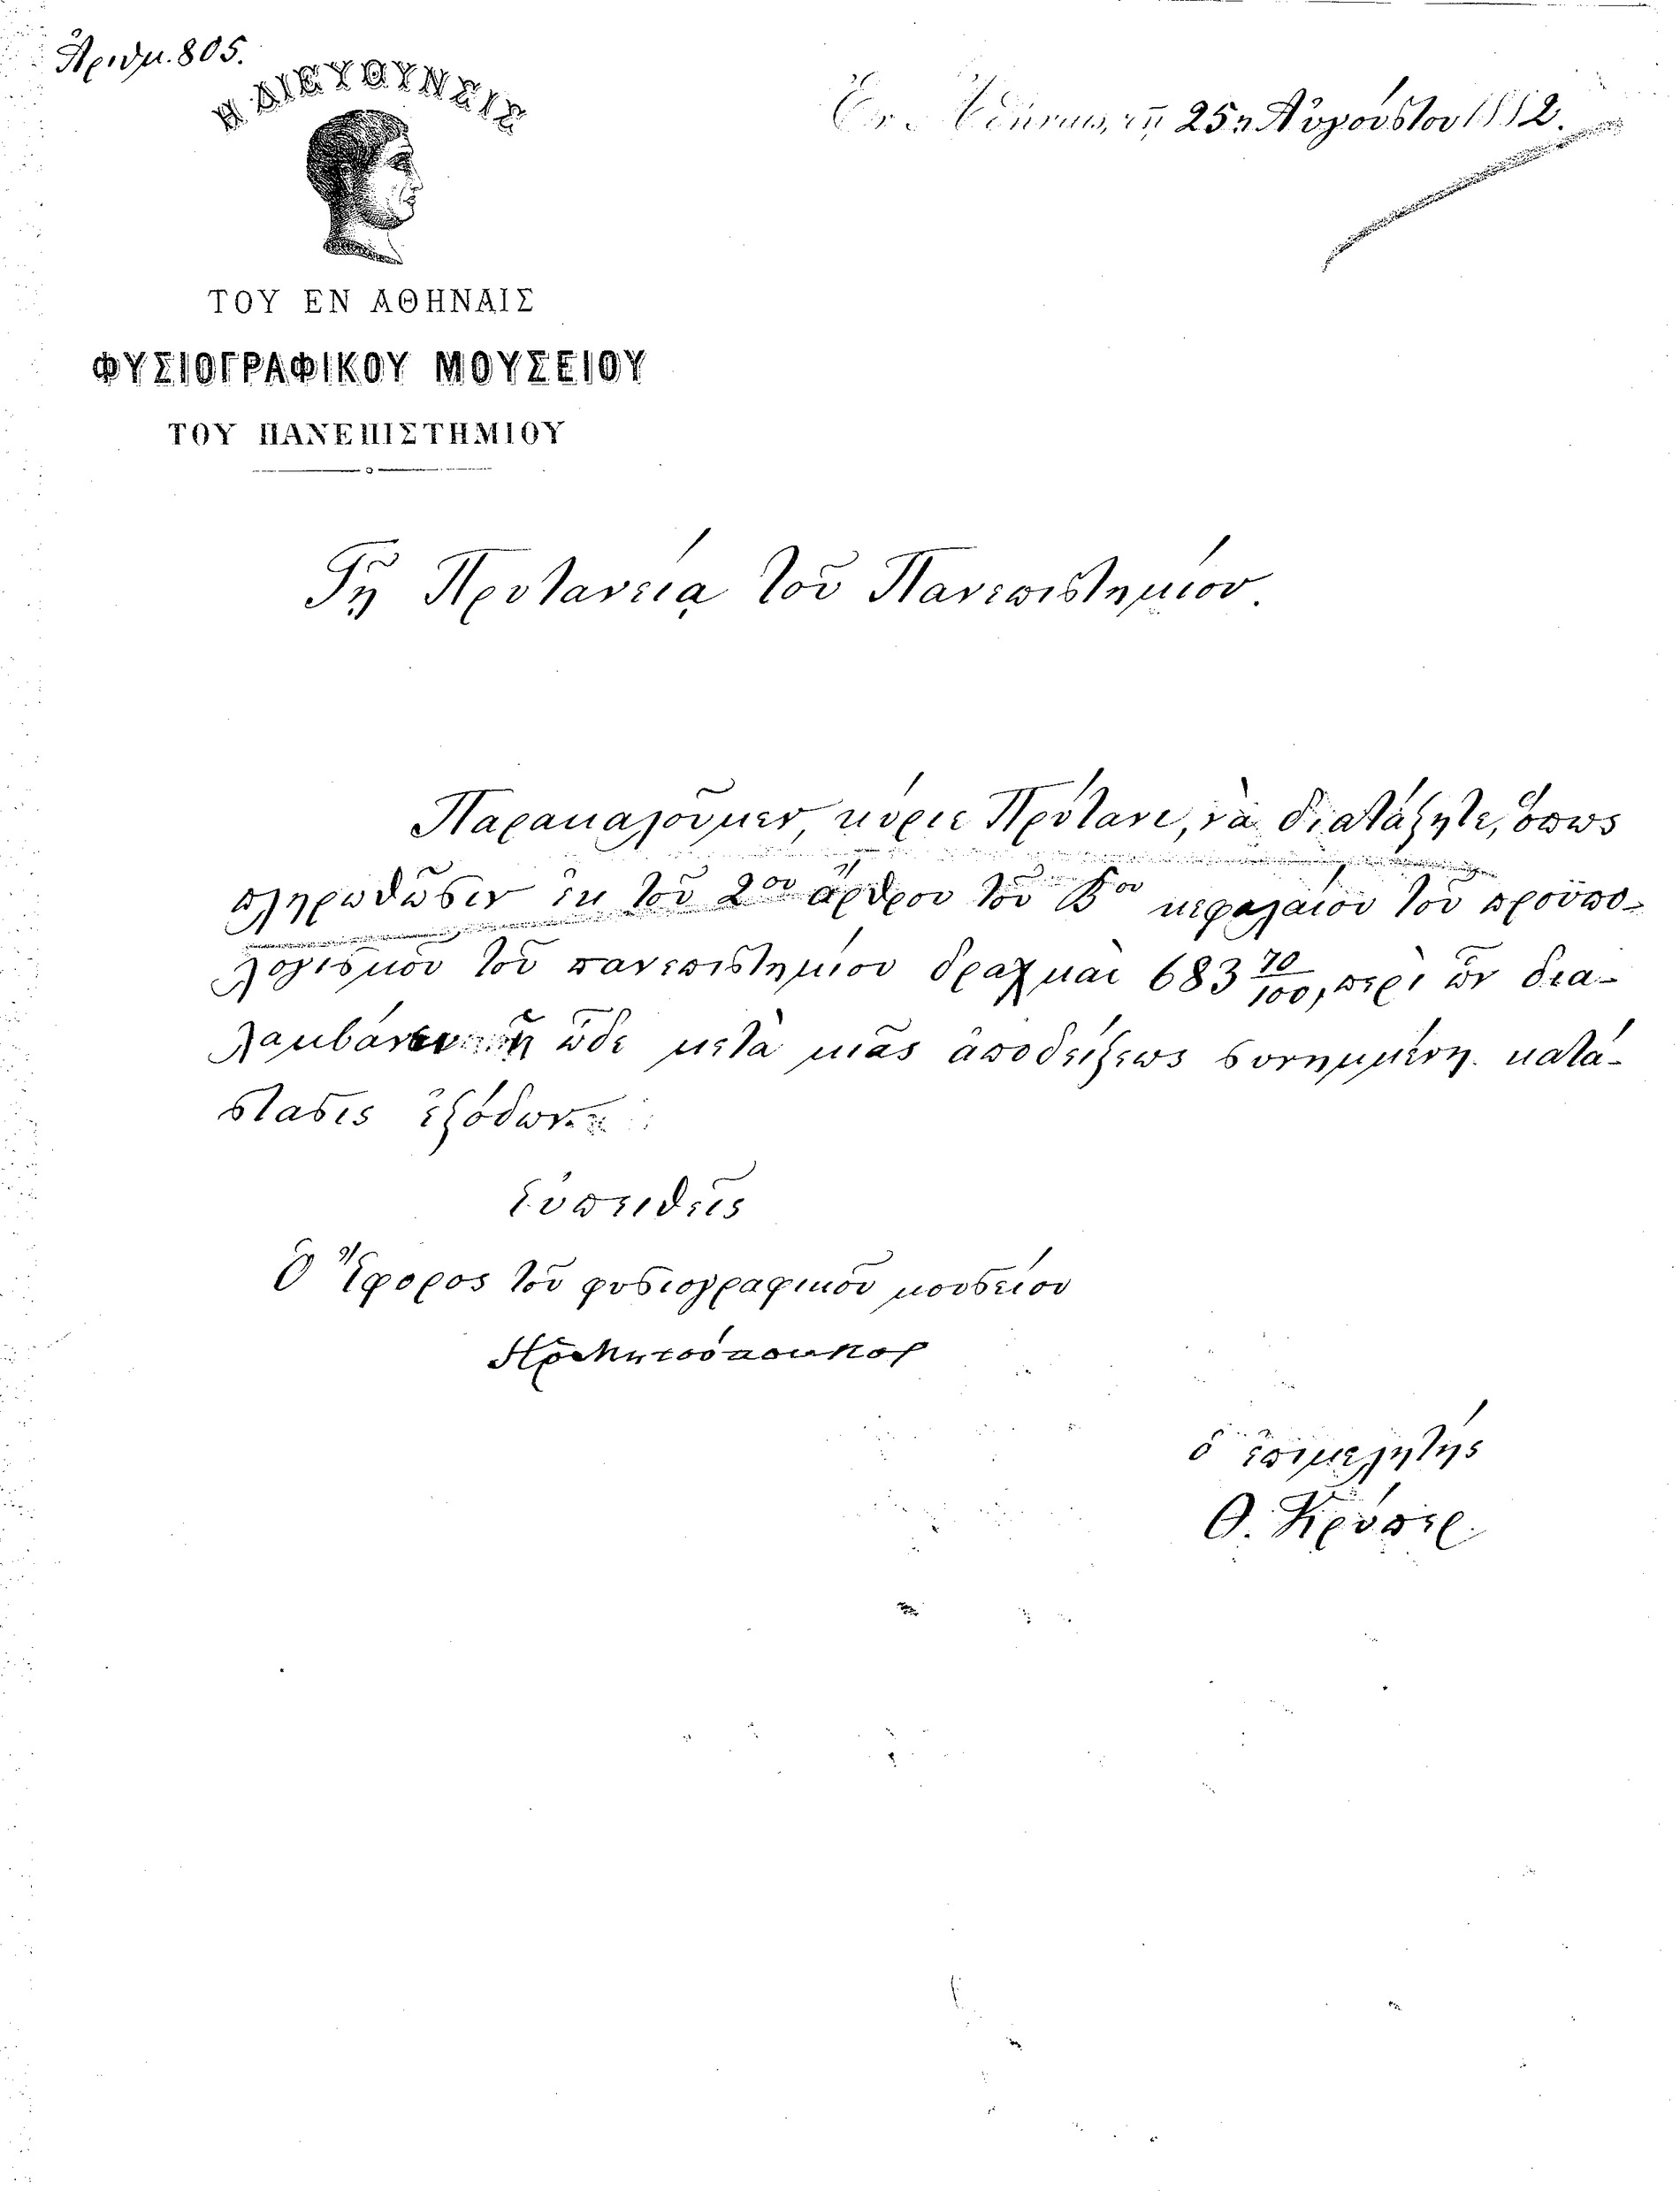 Ἀριθμ. 805.
Η ΔΙΕΥΘΥΝΣΙΣ
Ἐν Ἀθήναις, τῇ 25ῃ Αὐγούστου 1882.
ΤΟΥ ΕΝ ΑΘΗΝΑΙΣ
ΦΥΣΙΟΓΡΑΦΙΚΟΥ ΜΟΥΣΕΙΟΥ
ΤΟΥ ΠΑΝΕΠΙΣΤΗΜΙΟΥ
Τῇ Πρυτανείᾳ τοῦ Πανεπιστημίου.
Παρακαλοῦμεν, κύριε Πρύτανι, νὰ διατάξητε, ὅπως
πληρωθῶσιν ἐκ τοῦ 2ου ἄρθρου τοῦ Β΄ου κεφαλαίου τοῦ προϋπο-
λογισμοῦ τοῦ πανεπιστημίου δραχμαὶ 683 70/100, περὶ ὧν δια-
λαμβάνει ἡ ὧδε μετὰ μιᾶς ἀποδείξεως συνημμένη κατά-
στασις ἐξόδων.
Εὐπειθεῖς
Ὁ Ἔφορος τοῦ φυσιογραφικοῦ μουσείου
ὁ ἐπιμελητής
Θ. Κρύπερ